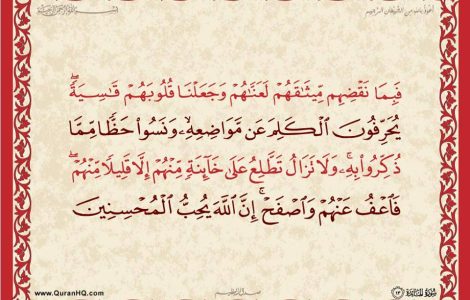 أعوذ بالله من الشيطان الرجيم
فَبِمَا نَقْضِهِم مِّيثَٰقَهُمْ لَعَنَّٰهُمْ وَجَعَلْنَا قُلُوبَهُمْ قَٰسِيَةً ۖ
يُحَرِّفُونَ ٱلْكَلِمَ عَن مَّوَاضِعِهِۦ ۙ وَنَسُوا۟ حَظًّا مِّمَّا
ذُكِّرُوا۟ بِهِۦ ۚ وَلَا تَزَالُ تَطَّلِعُ عَلَىٰ خَآئِنَةٍ مِّنْهُمْ إِلَّا قَلِيلًا مِّنْهُمْ ۖ
فَٱعْفُ عَنْهُمْ وَٱصْفَحْ ۚ إِنَّ ٱللَّهَ يُحِبُّ ٱلْمُحْسِنِينَ
www.QuranHQ.com
صدق الله العظيم
سُورَةُ المَائِدَة ١٣